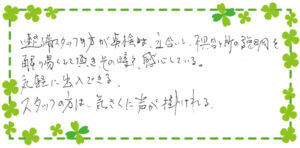 整備スタッフの方が車検時、立合いし、損具ヶ所の説明を
解り易くして頂きその場で感心している。
気軽に出入できる。
スタッフの方は、気さくに声が掛けれる。